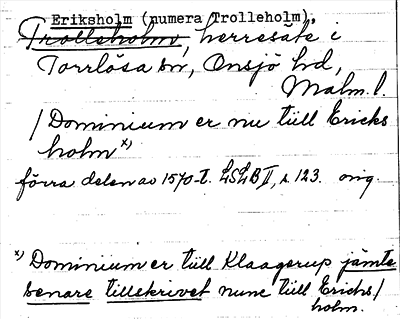 Eriksholm (numera Trolleholm),
Trolleholm, herresäte i
Torrlösa sn, Onsjö hd,
Malm. l.
/Dominium er nu tiill Ericks
holm x)
förra delen av 1570-t. LSLB II, s. 123. orig.
x) Dominium er tiill Klaagerup jämte
senare tillskrivet nunc tiill Erichs/
holm.